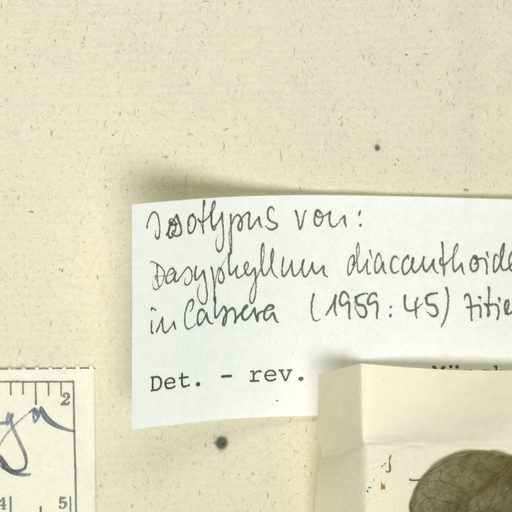 Isotypus von:
Dasyphyllum diacanthoide
in Cabrera (1959:45) zitie
Det. - rev.
2
4 5